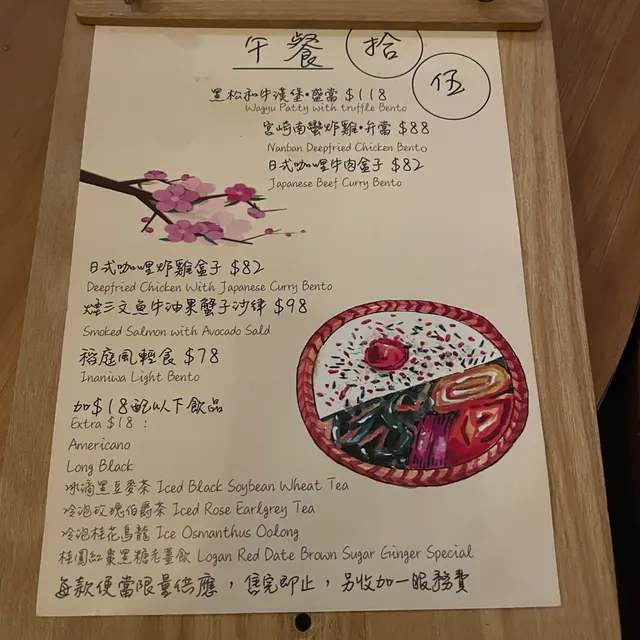 午餐 拾
伍
黑松和牛漢堡・盛當 $118
Wagyu Patty with truffle Bento
宮崎南蠻炸雞・弁當 $88
Nanban Deepfried Chicken Bento
日式咖哩牛肉盒子 $82
Japanese Beef Curry Bento
日式咖哩炸雞盒子 $82
Deepfried Chicken With Japanese Curry Bento
煙三文魚牛油果蟹子沙律 $98
Smoked Salmon with Avocado Sald
稻庭風輕食 $78
Inaniwa Light Bento
加$18配以下飲品
Extra $18 :
Americano
Long Black
冰滴黑豆麥茶 Iced Black Soybean Wheat Tea
冷泡玫瑰伯爵茶 Iced Rose Earlgrey Tea
冷泡桂花烏龍 Ice Osmanthus Oolong
桂圓紅棗黑糖老薑飲 Logan Red Date Brown Sugar Ginger Special
每款便當限量供應，售完即止，另收加一服務費